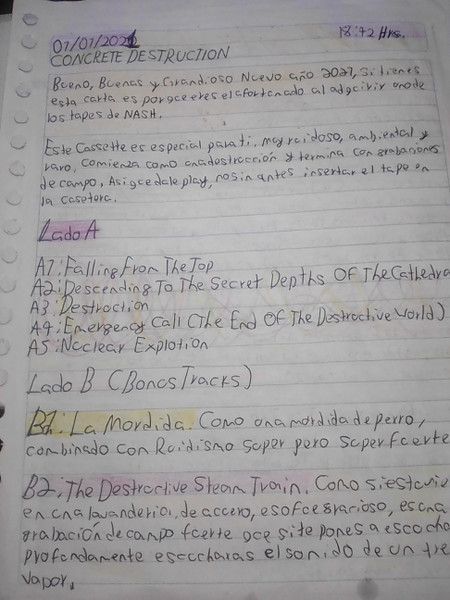 01/01/2021
18:42 Hrs.
CONCRETE DESTRUCTION
Bueno, Buenas y Grandioso Nuevo año 2021, si tienes
esta carta es porque eres el afortunado al adquirir uno de
los tapes de NASH.
Este Cassette es especial para ti, muy ruidoso, ambiental y
raro, comienza como una destrucción y termina con grabaciones
de campo, Asi que dale play, no sin antes insertar el tape en
la casetera.
Lado A
A1: Falling From The Top
A2: Descending To The Secret Depths Of The Cathedra
A3: Destruction
A4: Emergency Call (The End Of The Destructive World)
A5: Nuclear Explotion
Lado B (Bonus Tracks)
B1: La Mordida. Como una mordida de perro,
combinado con Ruidismo super pero super fuerte
B2: The Destructive Steam Train. Como si estuvie
en una lavanderia, de accero, eso fue gracioso, es una
grabación de campo fuerte que si te pones a escucha
profundamente escucharas el sonido de un tre
vapor.